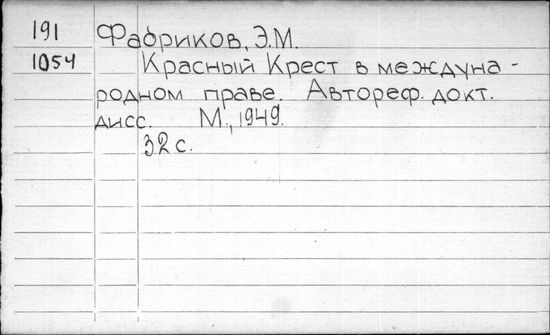 191 Фабриков, Э.М.
1054 Красный Крест в междуна-
родном праве. Автореф. докт.
дисс. М., 1949.
32 с.